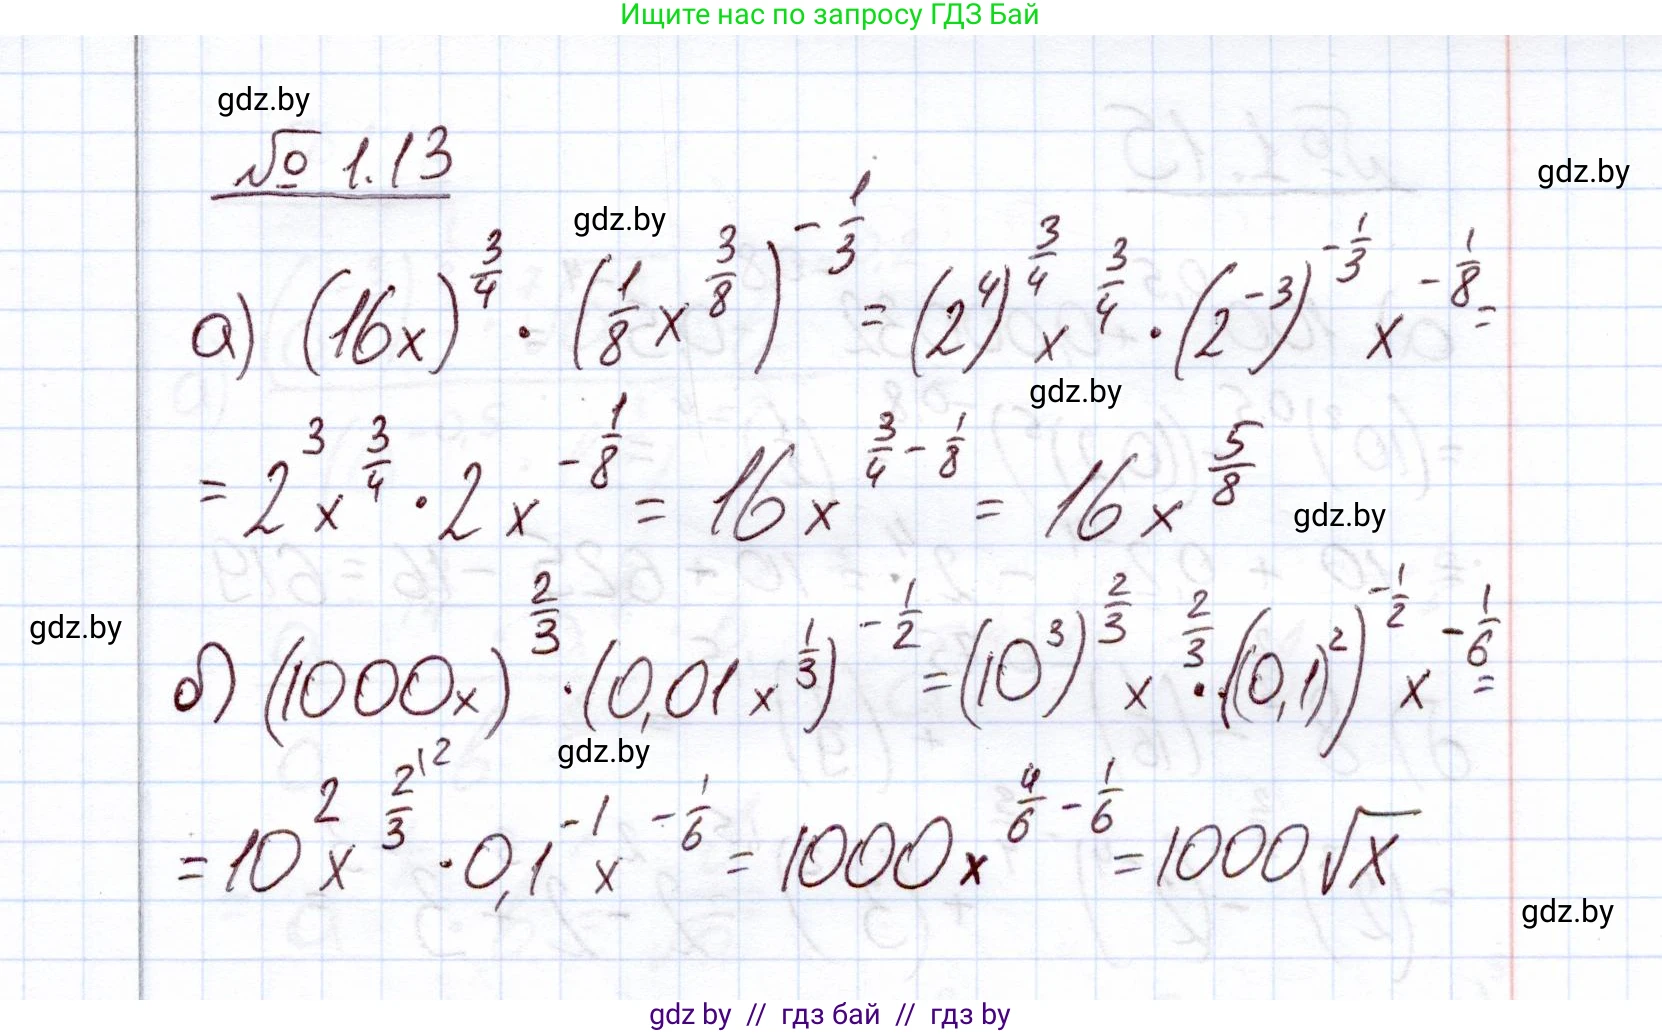 Ищите нас по запросу ГДЗ Бай
gdz.by
№ 1.13
gdz.by
gdz.by
а) (16x)^(3/4) · (1/8 x^(3/8))^(-1/3) = (2^4)^(3/4) x^(3/4) · (2^(-3))^(-1/3) x^(-1/8) =
gdz.by
= 2^3 x^(3/4) · 2 x^(-1/8) = 16x^(3/4 - 1/8) = 16x^(5/8)
gdz.by
gdz.by
б) (1000x)^(2/3) · (0,01x^(1/3))^(-1/2) = (10^3)^(2/3) x^(2/3) · ((0,1)^2)^(-1/2) x^(-1/6) =
gdz.by
= 10^2 x^(2/3)^(12) · 0,1^(-1) x^(-1/6) = 1000x^(4/6 - 1/6) = 1000√x
gdz.by
gdz by // гдз бай // гдз by